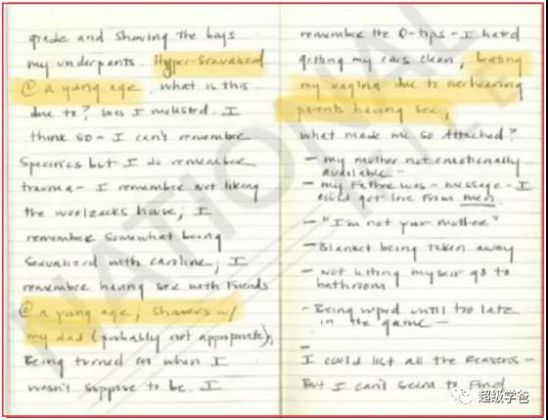 grade and showing the boys
my underpants. Hyper-sexualized
@ a young age. what is this
due to? Was I molested. I
think so - I can't remember
specifics but I do remember
trauma - I remember not liking
the woolzacks house; I
remember somewhat being
sexualized with caroline; I
remember having sex with friends
@ a young age; showers w/
my dad (probably not appropriate).
Being turned on when I
wasn't suppose to be. I
remember the Q-tips - I hated
getting my ears clean;
my vagina due to overhearing
parents having sex;
what made me so attached?
- my mother not emotionally
available -
- my Father was - message - I
could get love from men.
- "I'm not your mother"
- Blanket being taken away
- not letting myself go to
bathroom
- Being until too late
in the game -
-
I could list all the reasons -
But I can't seem to find
NATIONAL FILE
超级学爸